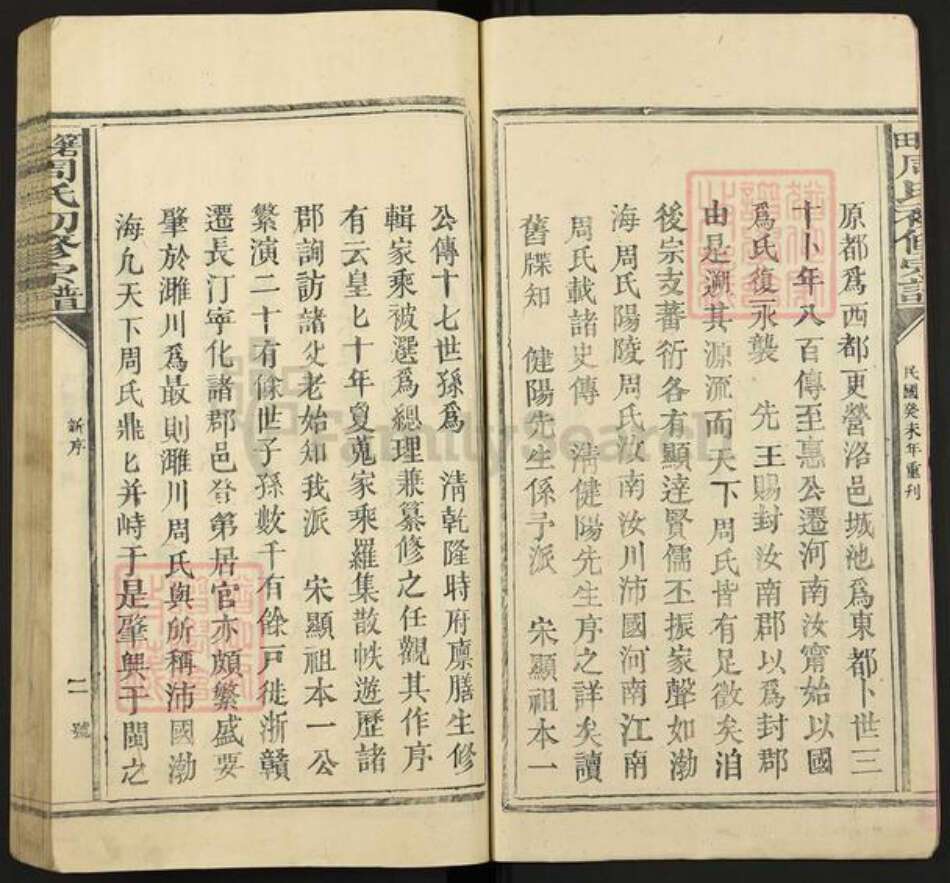 原都爲西都更營洛邑城池爲東都卜世三
十卜年八百傳至惠公遷河南汝甯始以國
爲氏復永襲 先王賜封汝南郡以爲封郡
由是溯其源流而天下周氏皆有足徵矣洎
後宗支蕃衍各有顯達賢儒丕振家聲如渤
海周氏陽陵周氏汝南汝川沛國河南江南
周氏載諸史傳 清健陽先生序之詳矣讀
舊牒知 健陽先生係予派 宋顯祖本一
民國癸未年重刊
公傳十七世孫爲 清乾隆時府廪膳生修
輯家乘被選爲總理兼纂修之任觀其作序
有云皇七十年夏蒐家乘羅集散帙遊歷諸
郡詢訪諸父老始知我派 宋顯祖本一公
繁演二十有餘世子孫數千有餘戸徙浙贛
遷長汀寧化諸郡邑登第居官亦頗繁盛要
肇於濉川爲最則濉川周氏與所稱沛國渤
海允天下周氏鼎七并峙于是肇興于閩之
周氏初修宗譜
新序
二號
FamilySearch